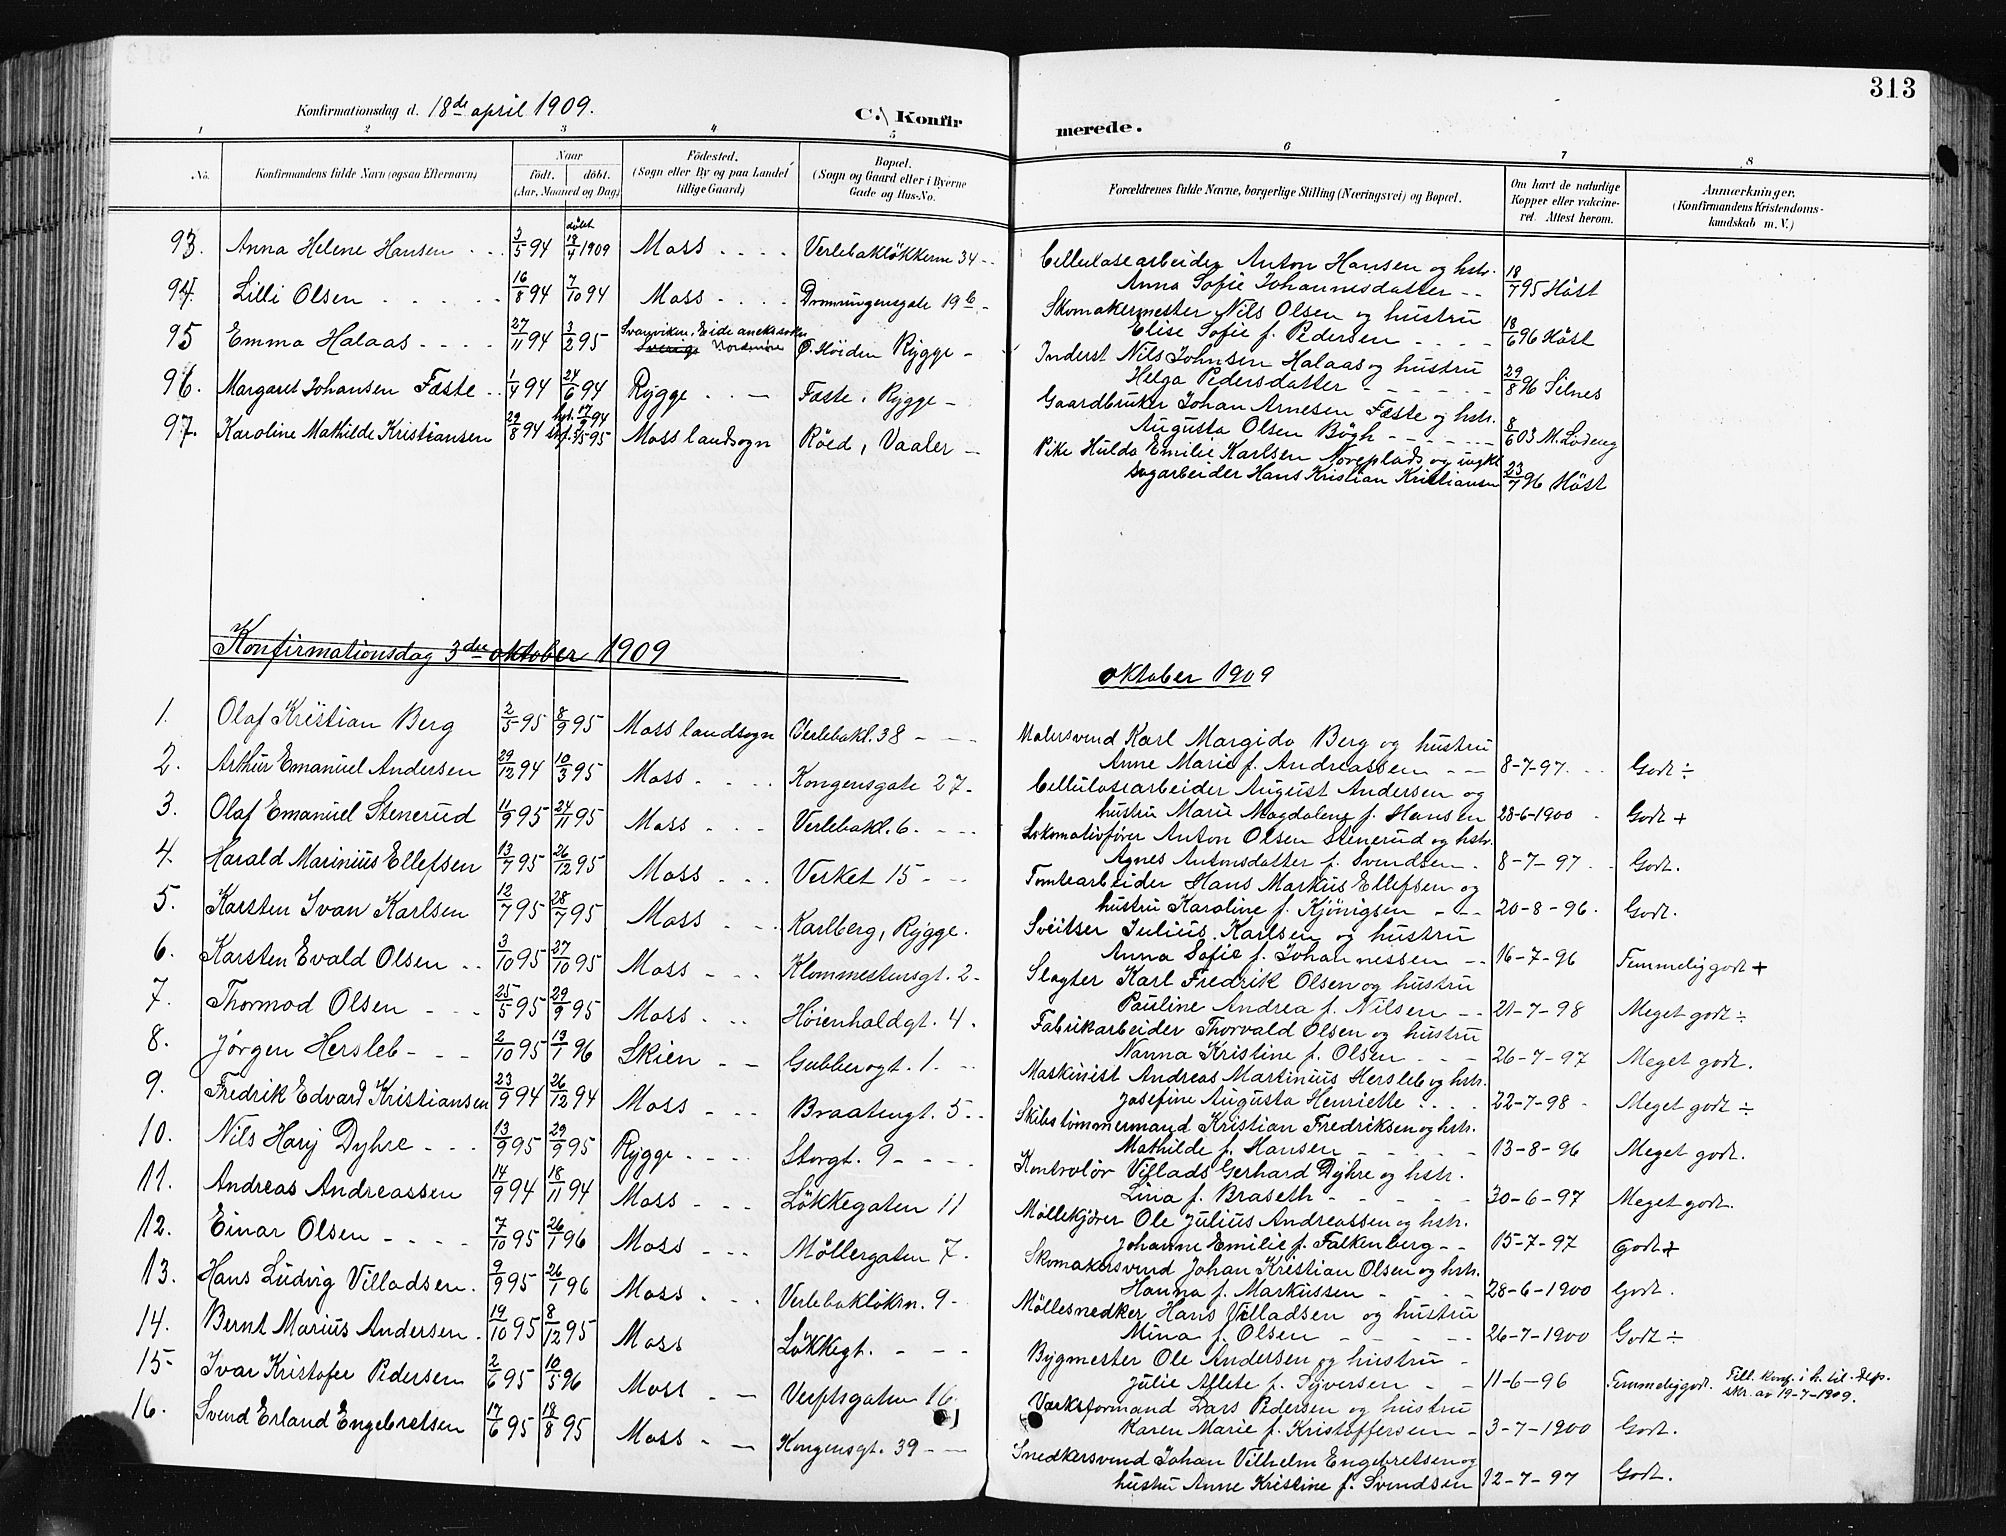 313
Konfirmationsdag d. 18de april 1909. C. Konfir merede.
1 2 3 4 5 6 7 8
No. Konfirmandens fulde Navn (ogsaa Efternavn) Naar født. døbt. (Aar, Maaned og Dag) Fødested. (Sogn eller By og paa Landet tillige Gaard) Bopæl. (Sogn og Gaard eller i Byerne Gade og Hus-No. Forældrenes fulde Navne, borgerlige Stilling (Næringsvei) og Bopæl. Om havt de naturlige Kopper eller vaksineret. Attest herom. Anmærkninger. (Konfirmandens Kristendomskundskab m. V.)
93. Anna Helene Hansen 3/5 94 døbt 18/4 1909 Moss Verlebakløkkerne 34 Cellulosearbeider Anton Hansen og hstr.
Anna Sofie Johannesdatter 18/7 95 Høst
94. Lilli Olsen 16/8 94 7/10 94 Moss Dronningensgate 19b Skomakermester Nils Olsen og hustru
Elise Sofie f. Pedersen 18/6 96 Høst
95 Emma Halaas 27/11 94 3/2 95 Svanviken, Eide anekssokn Sverige Nordmøre Ø. Høiden Rygge Inderst Nils Johnsen Halaas og hustru
Helga Pedersdatter 29/8 96 Silnes
96. Margaret Johansen Fæste 1/4 94 24/6 94 Rygge Fæste, Rygge Gaardbruker Johan Arnesen Fæste og hstr.
Augusta Olsen Bøgh 8/6 03 M. Lodeng
97. Karoline Mathilde Kristiansen 29/8 94 hjd. 17/9 94 stf. 5/5 95 Moss landsogn Røed, Vaaler Pike Hulda Emilie Karlsen Noreplads og ungkl
sagarbeider Hans Kristian Kristiansen 23/7 96 Høst
Konfirmationsdag 3die oktober 1909 oktober 1909
1. Olaf Kristian Berg 2/5 95 8/9 95 Moss landsogn Verlebakl. 38 Malersvend Karl Margido Berg og hustru
Anne Marie f. Andreassen 8-7-97. Godt ÷
2. Arthur Emanuel Andersen 29/12 94 10/3 95 Moss Kongensgate 27 Cellulosearbeider August Andersen og
hustru Marie Magdalene f. Hansen 28-6-1900 Godt +
3. Olaf Emanuel Stenerud 11/9 95 24/11 95 Moss Verlebakl. 6. Lokomotivfører Anton Olsen Stenerud og hstr.
Agnes Antonsdatter f. Svendsen 8-7-97 Godt.
4. Harald Marinius Ellefsen 13/7 95 26/12 95 Moss Verket 15 Tomtearbeider Hans Markus Ellefsen og
hustru Karoline f. Kjønigsen 20-8-96. Godt.
5. Karsten Ivan Karlsen 12/7 95 28/7 95 Moss Karlberg, Rygge. Sveitser Julius Karlsen og hustru
Anna Sofie f. Johannessen 16-7-96 Temmelig godt +
6. Karsten Evald Olsen 3/10 95 27/10 95 Moss Klommestensgt. 2 Slagter Karl Fredrik Olsen og hustru
Pauline Andrea f. Nilsen 21-7-98 Meget godt ÷
7. Thormod Olsen 25/5 95 29/9 95 Moss Høienhaldgt. 4. Fabrikarbeider Thorvald Olsen og hustru
Nanna Kristine f. Olsen 26-7-97 Meget godt.
8. Jørgen Hersleb 2/10 95 13/1 96 Skien Gubberogt. 1. Maskinist Andreas Martinius Hersleb og hstr.
Josefine Augusta Henriette 22-7-98 Meget godt ÷
9. Fredrik Edvard Kristiansen 23/9 94 26/12 94 Moss Braatengt. 5 Skibstømmermand Kristian Fredriksen og hstr.
Mathilde f. Hansen 13-8-96 Meget godt.
10. Nils Harij Dyhre 13/9 95 29/9 95 Rygge Storgt. 9 Kontrolør Villads Gerhard Dyhre og hstr.
Lina f. Braseth 30-6-97 Meget godt.
11. Andreas Andreassen 14/9 94 18/11 94 Moss Løkkegaten 11 Møllekjører Ole Julius Andreassen og hstr.
Johanne Emilie f. Falkenberg 15-7-97 Godt +
12. Einar Olsen 7/10 95 26/1 96 Moss Møllergaten 7. Skomakersvend Johan Kristian Olsen og hstr.
Hanna f. Markussen 28-6-1900 Godt.
13. Hans Ludvig Villadsen 9/9 95 26/1 96 Moss Verlebakløkn. 9 Møllesnedker Hans Villadsen og hustru
Mina f. Olsen 26-7-1900 Godt ÷
14. Bernt Marius Andersen 19/10 95 8/12 95 Moss Løkkegt. Bygmester Ole Andersen og hustru
Julie Aflete f. Syversen 11-6-96 Temmelig godt. Till. konf. i h. til. dep. skr. av 19-7-1909.
15 Ivar Kristofer Pedersen 2/6 95 10/5 96 Moss Verftsgaten 16 Værksformand Lars Pedersen og hustru
Karen Marie f. Kristoffersen 3-7-1900 Godt.
16. Svend Erland Engebretsen 17/6 95 18/8 95 Moss Kongensgt. 39 Snedkersvend Johan Vilhelm Engebretsen og
hustru Anne Kristine f. Svendsen 12-7-97 Godt.